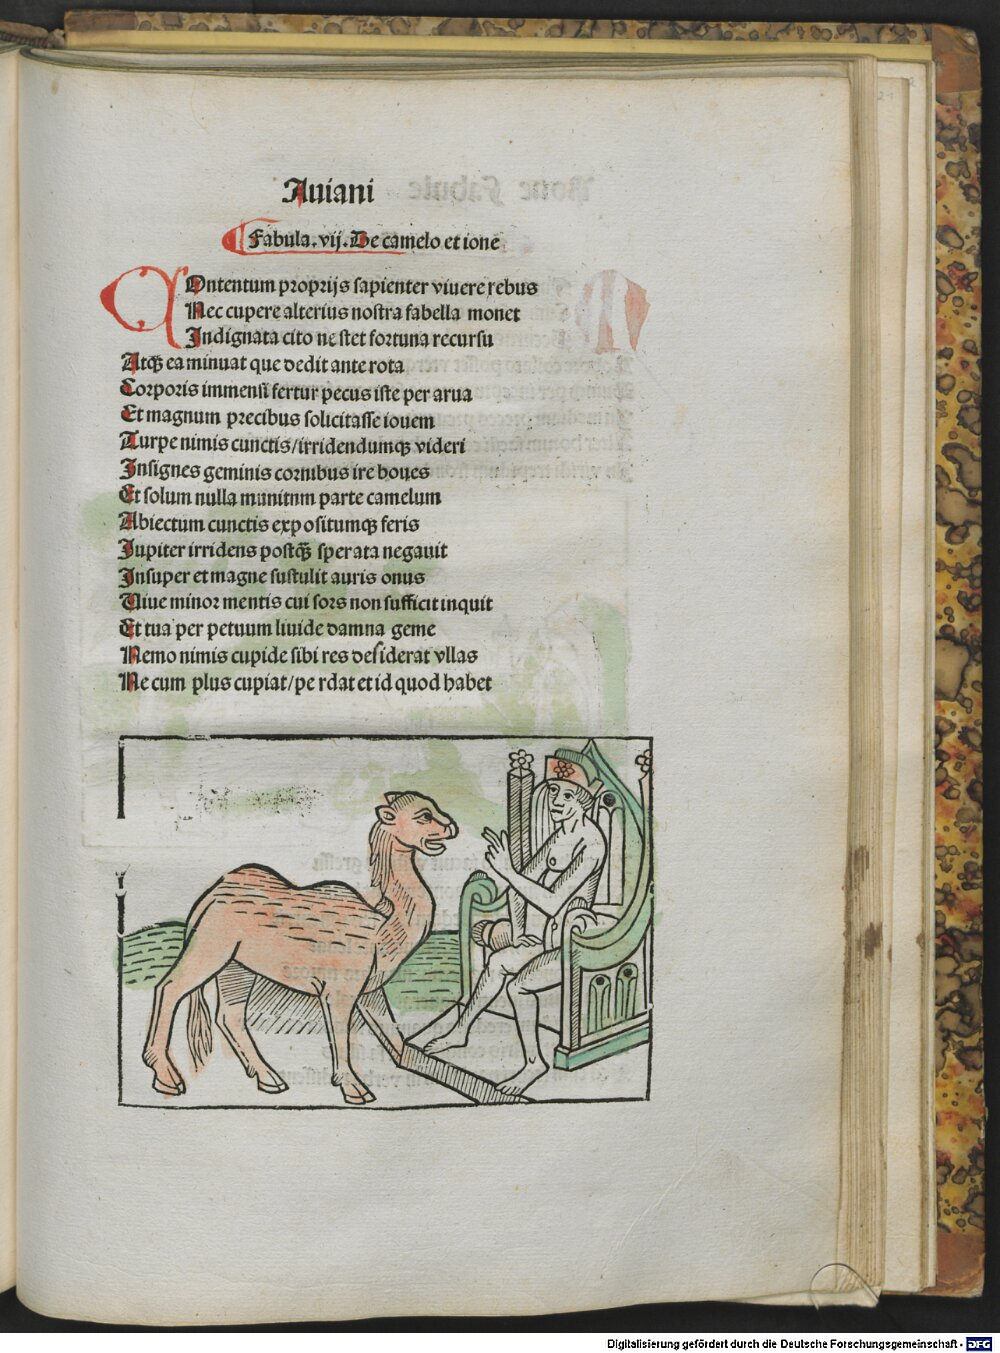 Auiani
Fabula. vij. De camelo et ioue
COntentum proprijs sapienter viuere rebus
Nec cupere alterius nostra fabella monet
Indignata cito ne stet fortuna recursu
Atqꝫ ea minuat que dedit ante rota
Corporis immensi fertur pecus iste per arua
Et magnum precibus solicitasse iouem
Turpe nimis cunctis/irridendumqꝫ videri
Insignes geminis cornibus ire boues
Et solum nulla munitum parte camelum
Abiectum cunctis expositumqꝫ feris
Jupiter irridens postqꝫ̄ sperata negauit
Insuper et magne sustulit auris onus
Viue minor mentis cui sors non sufficit inquit
Et tua per petuum liuide damna geme
Nemo nimis cupide sibi res desiderat vllas
Ne cum plus cupiat/pe rdat et id quod habet
Digitalisierung gefördert durch die Deutsche Forschungsgemeinschaft - DFG